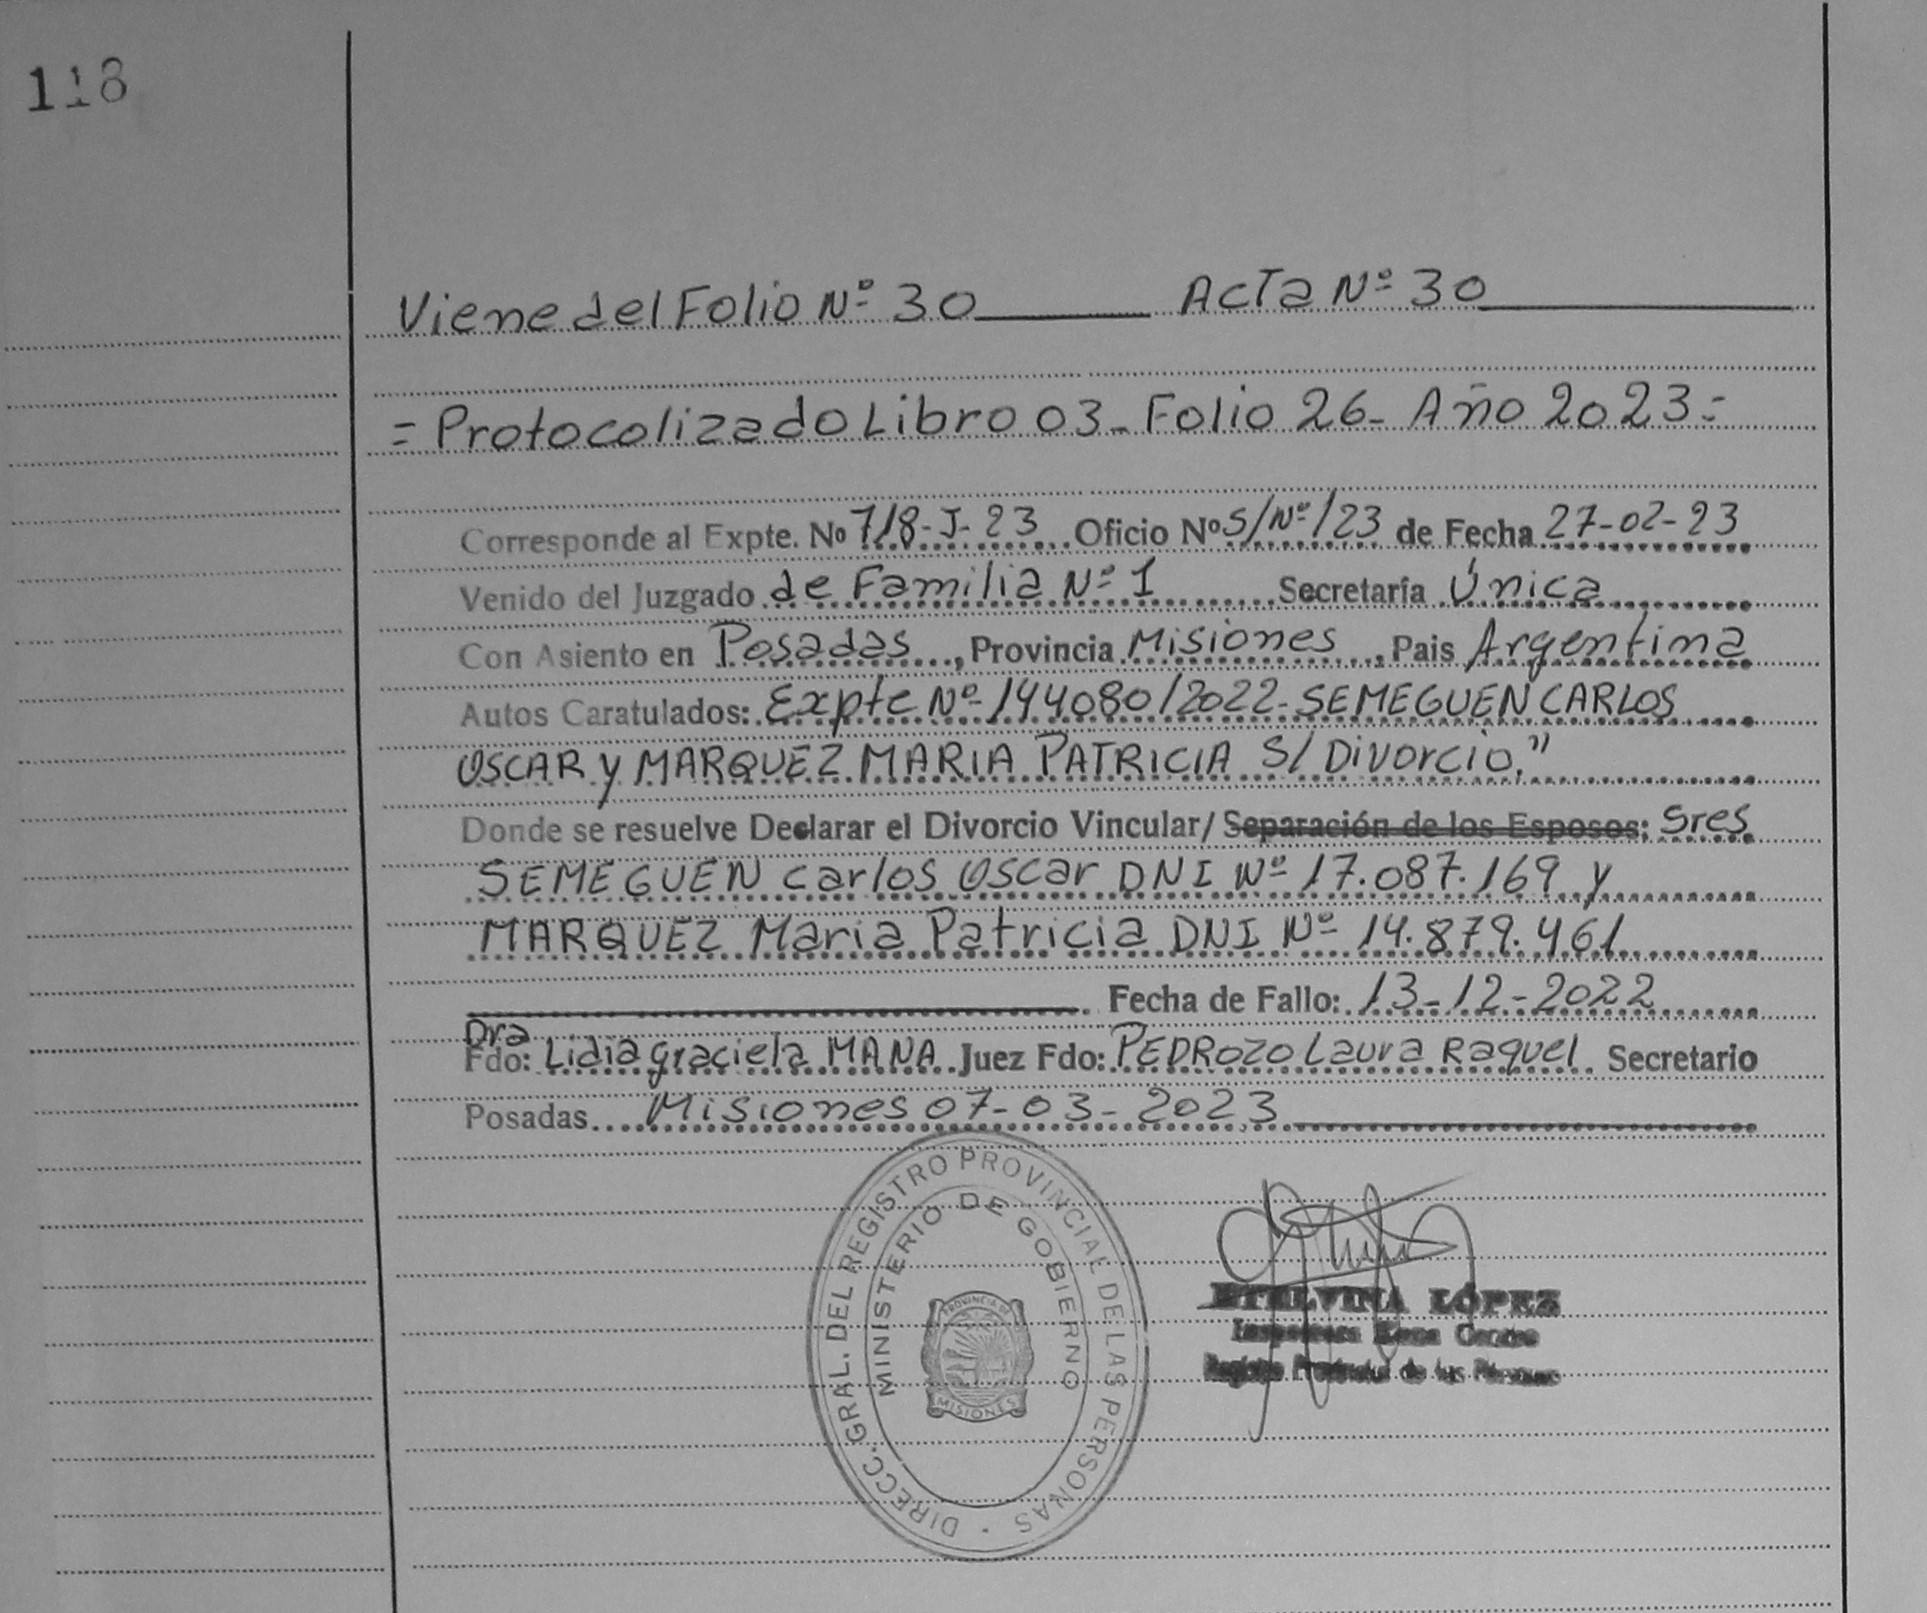 118
Viene del Folio Nº 30 Acta Nº 30
= Protocolizado Libro 03 - Folio 26 - Año 2023 =
Corresponde al Expte. Nº 718-J-23 Oficio Nº S/Nº/23 de Fecha 27-02-23
Venido del Juzgado de Familia Nº 1 Secretaría Única
Con Asiento en Posadas, Provincia Misiones, Pais Argentina
Autos Caratulados: Expte Nº 144080/2022- SEMEGUEN CARLOS
OSCAR y MARQUEZ MARIA PATRICIA S/ Divorcio."
Donde se resuelve Declarar el Divorcio Vincular/ Separación de los Esposos: Sres
SEMEGUEN Carlos Oscar DNI Nº 17.087.169 y
MARQUEZ Maria Patricia DNI Nº 14.879.461
Fecha de Fallo: 13-12-2022
Dra
Fdo: Lidia graciela MANA Juez Fdo: PEDROZO Laura Raquel Secretario
Posadas Misiones 07-03-2023
DIRECC. GRAL. DEL REGISTRO PROVINCIAL DE LAS PERSONAS
MINISTERIO DE GOBIERNO
PROVINCIA DE
MISIONES
ETELVINA LÓPEZ
Inspectora Zona Centro
Registro Provincial de las Personas